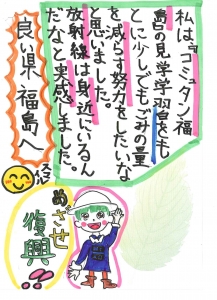 私は『コミュタン福
島の見学学習をも
とに少しでもごみの量
を減らす努力をしたいな
と思いました。
放射線は身近にいるん
だなと実感しました。
良い県福島へ
スマイル
めざせ
復興!!